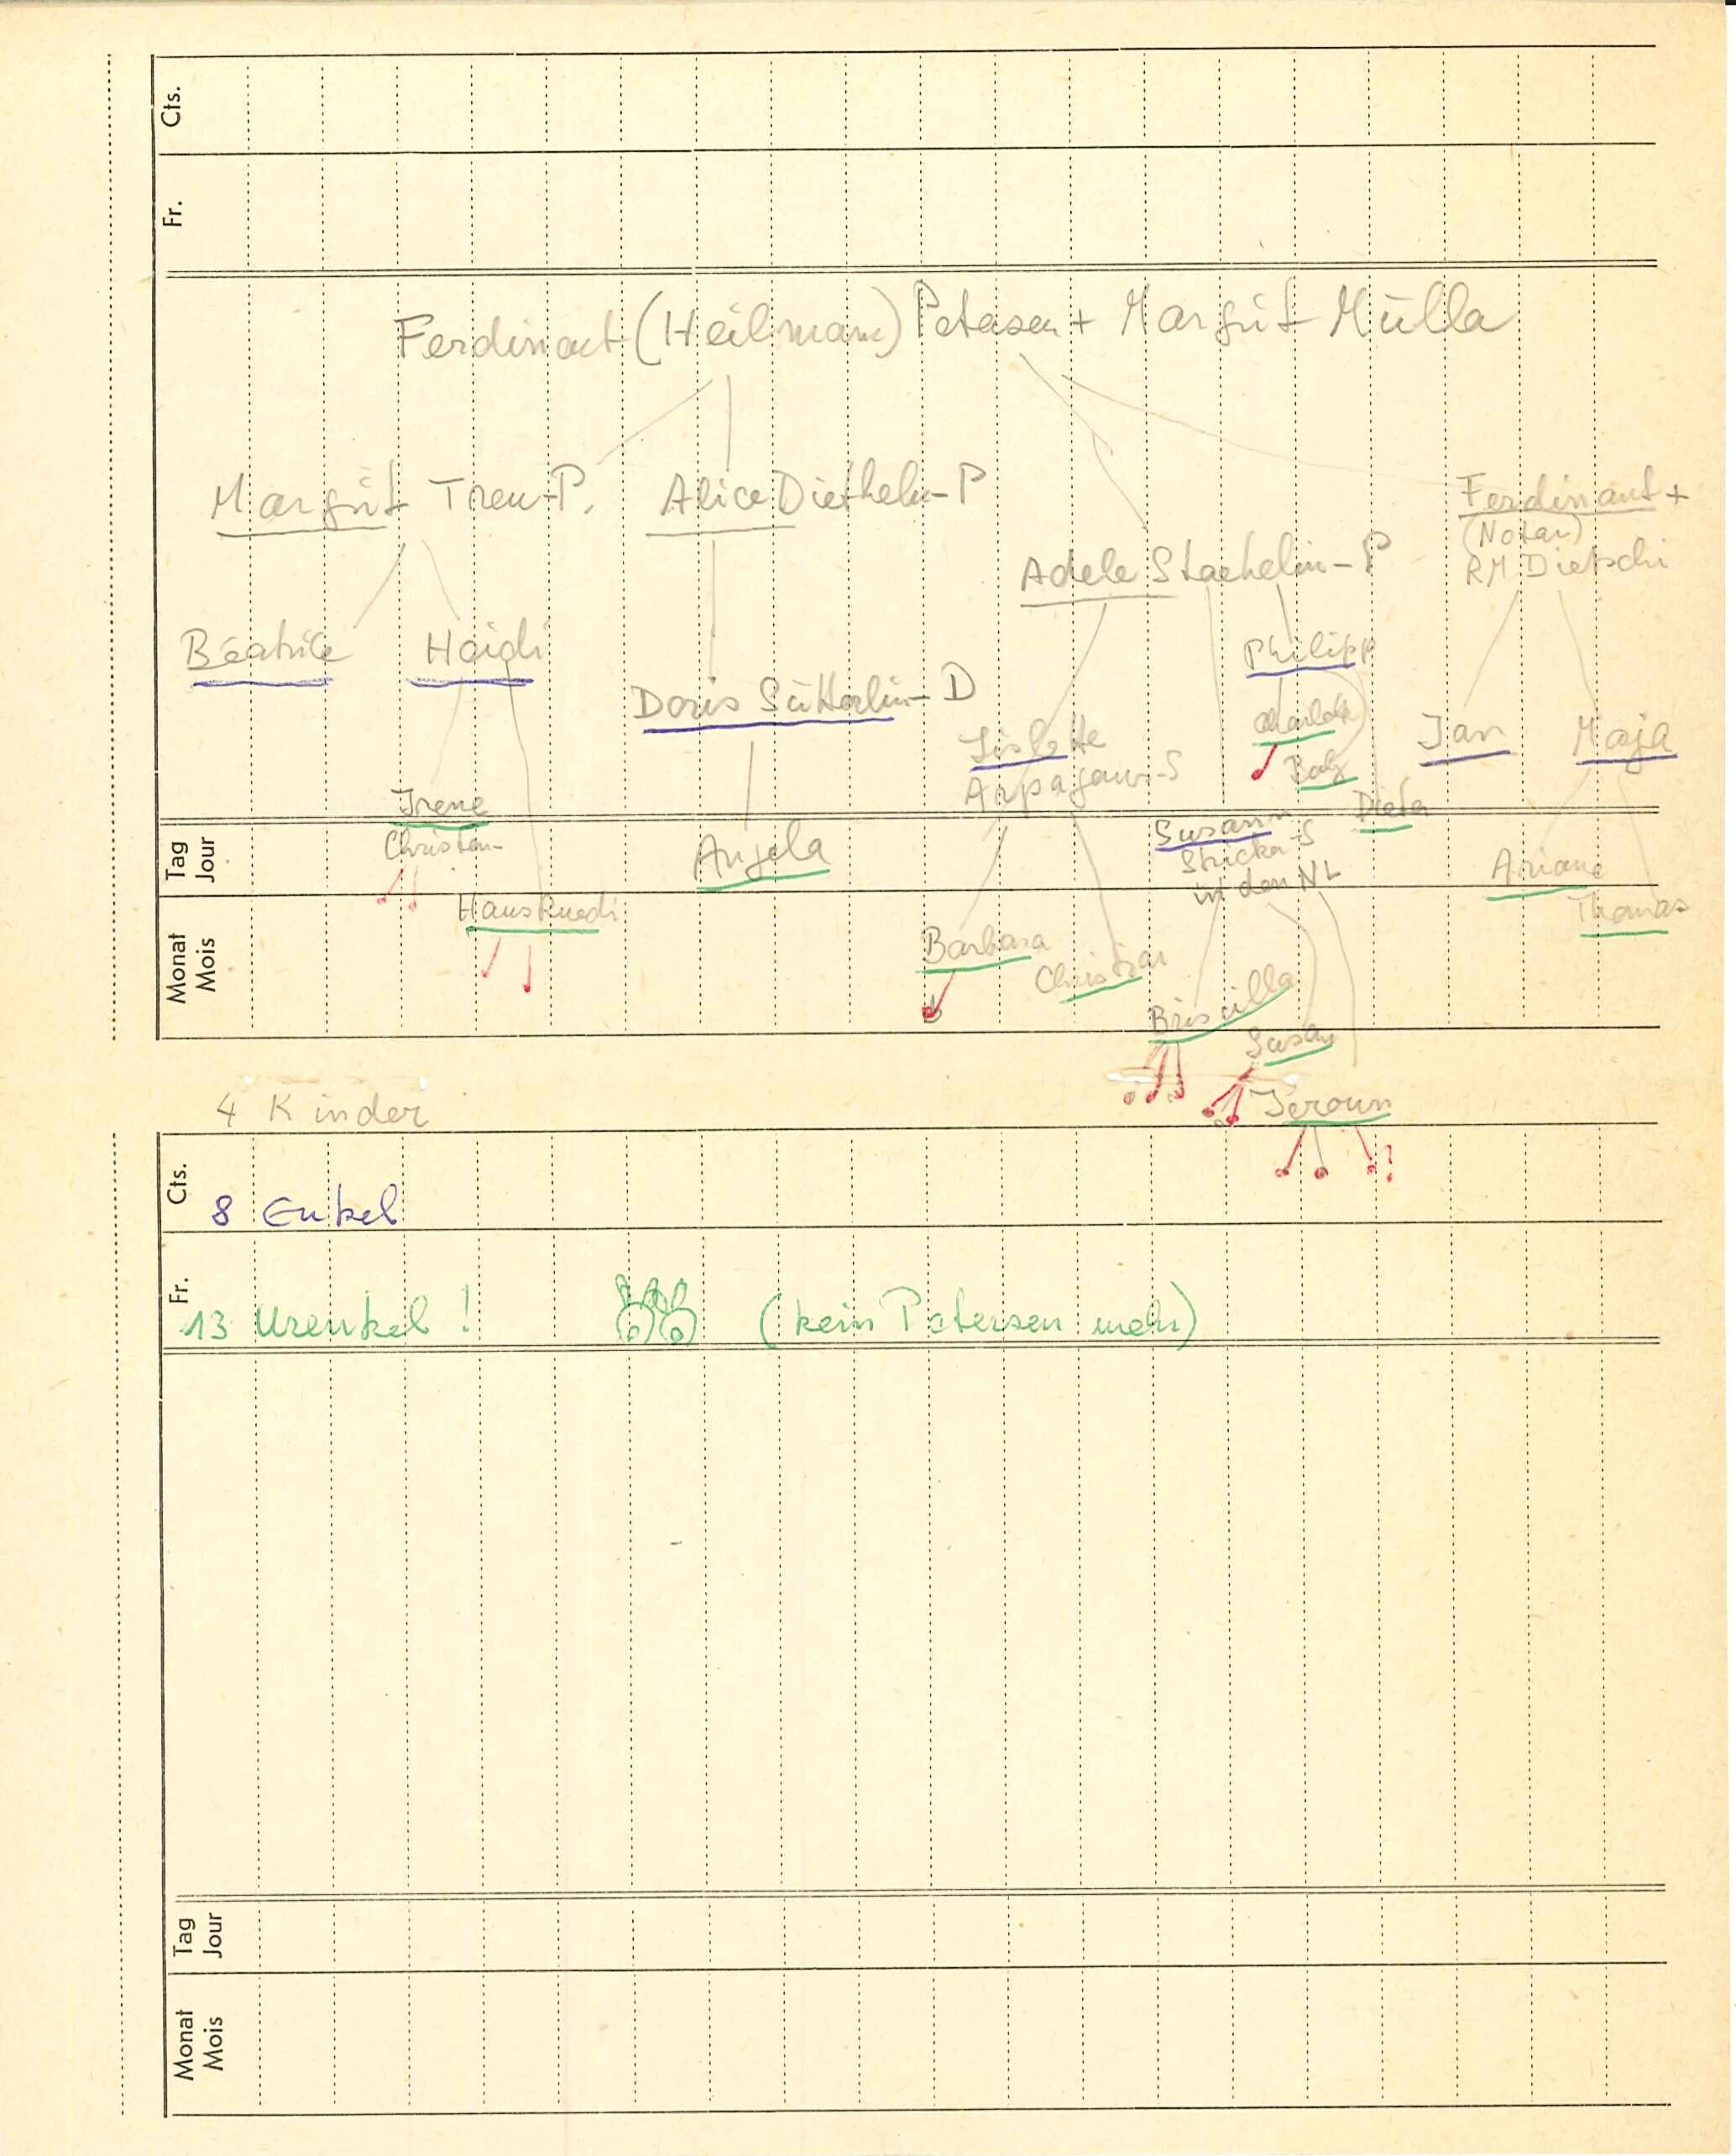 Cts.
Fr.
Ferdinant (Heilmann) Petersen + Margrit Müller
Margrit Treu-P.
Alice Diethelm-P
Ferdinant +
(Notar)
RM Dietschi
Adele Staehelin-P
Béatrice
Heidi
Philipp
Doris Sütterlin-D
Lislotte
Jan
Maja
Irene
Christen-
Dieter
Tag
Jour
Angela
Susann
Stricker-S
in den NL
Ariane
Thomas
HansRuedi
Monat
Mois
Barbara
Christian
Briscilla
Susan
Jeroun
4 Kinder
?
Cts.
8 Enkel
Fr.
13 Urenkel!
(kein Petersen mehr)
Tag
Jour
Monat
Mois